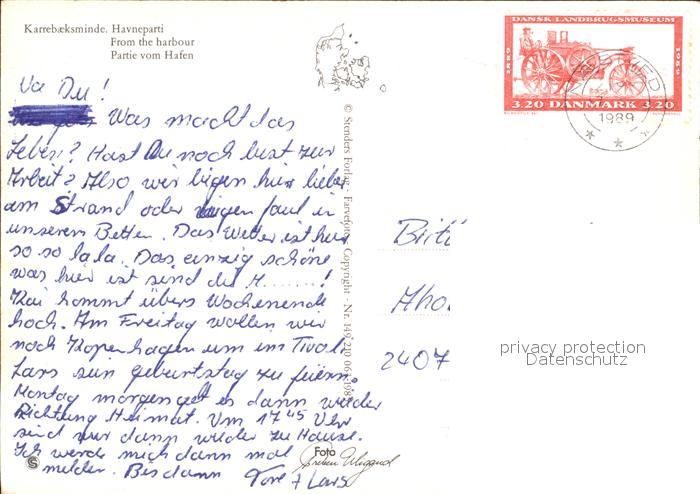 Karrebæksminde. Havneparti
From the harbour
Partie vom Hafen
DANSK LANDBRUGSMUSEUM
1889 1989
3.20 DANMARK 3.20
1989
Na Du!
Was macht das
Leben? Hast Du noch lust zur
Arbeit? Also wir ligen hier lieber
am Strand oder ligen faul in
unseren Betten. Das Wetter ist hier
so so lala. Das einzig schöne
was hier ist sind die M.......!
Kai kommt übers Wochenende
hoch. Am Freitag wollen wir
nach Kopenhagen um im Tivoli
Lars sein geburtstag zu feiern.
Montag morgen get es dann wieder
Richtung Heimat. Um 17 45 Uhr
sind wir dann wieder zu Hause.
Ich werde mich dann mal
melden. Bis dann Tore + Lars
© Stenders Forlag - Farvefoto - Copyright - Nr. 149 210
Foto
S
Birti
Aho
2407
privacy protection
Datenschutz